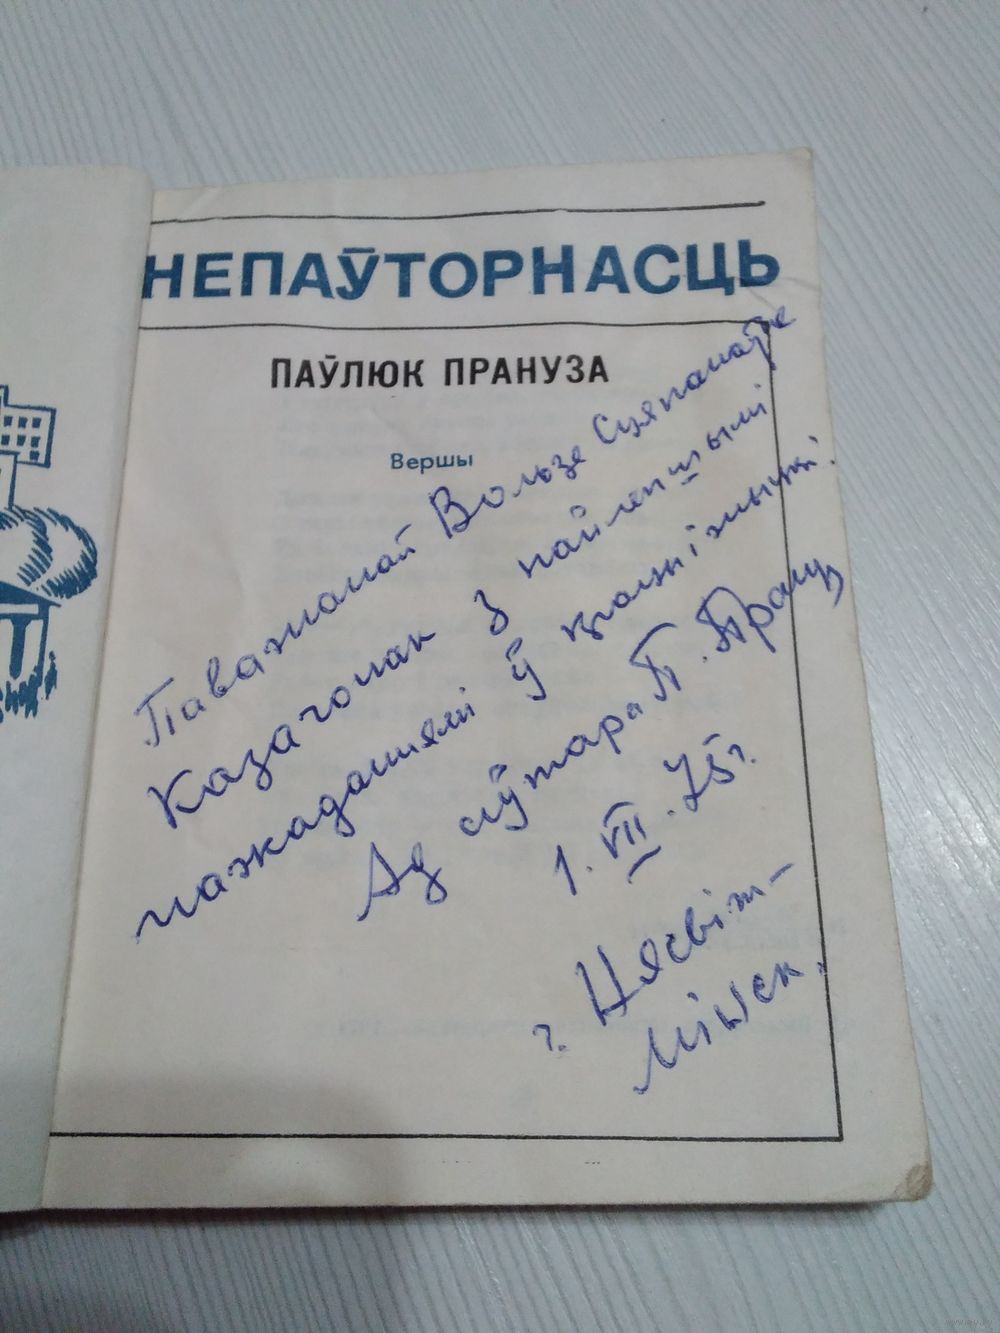 НЕПАЎТОРНАСЦЬ
ПАЎЛЮК ПРАНУЗА
Вершы
Паважанай Вользе Сцяпанаўне
Казачонак з найлепшымі
пажаданнямі ў працы і жыцці.
Ад аўтара П. Прануз
1. VII. 75 г.
г. Нясвіж -
Мінск.